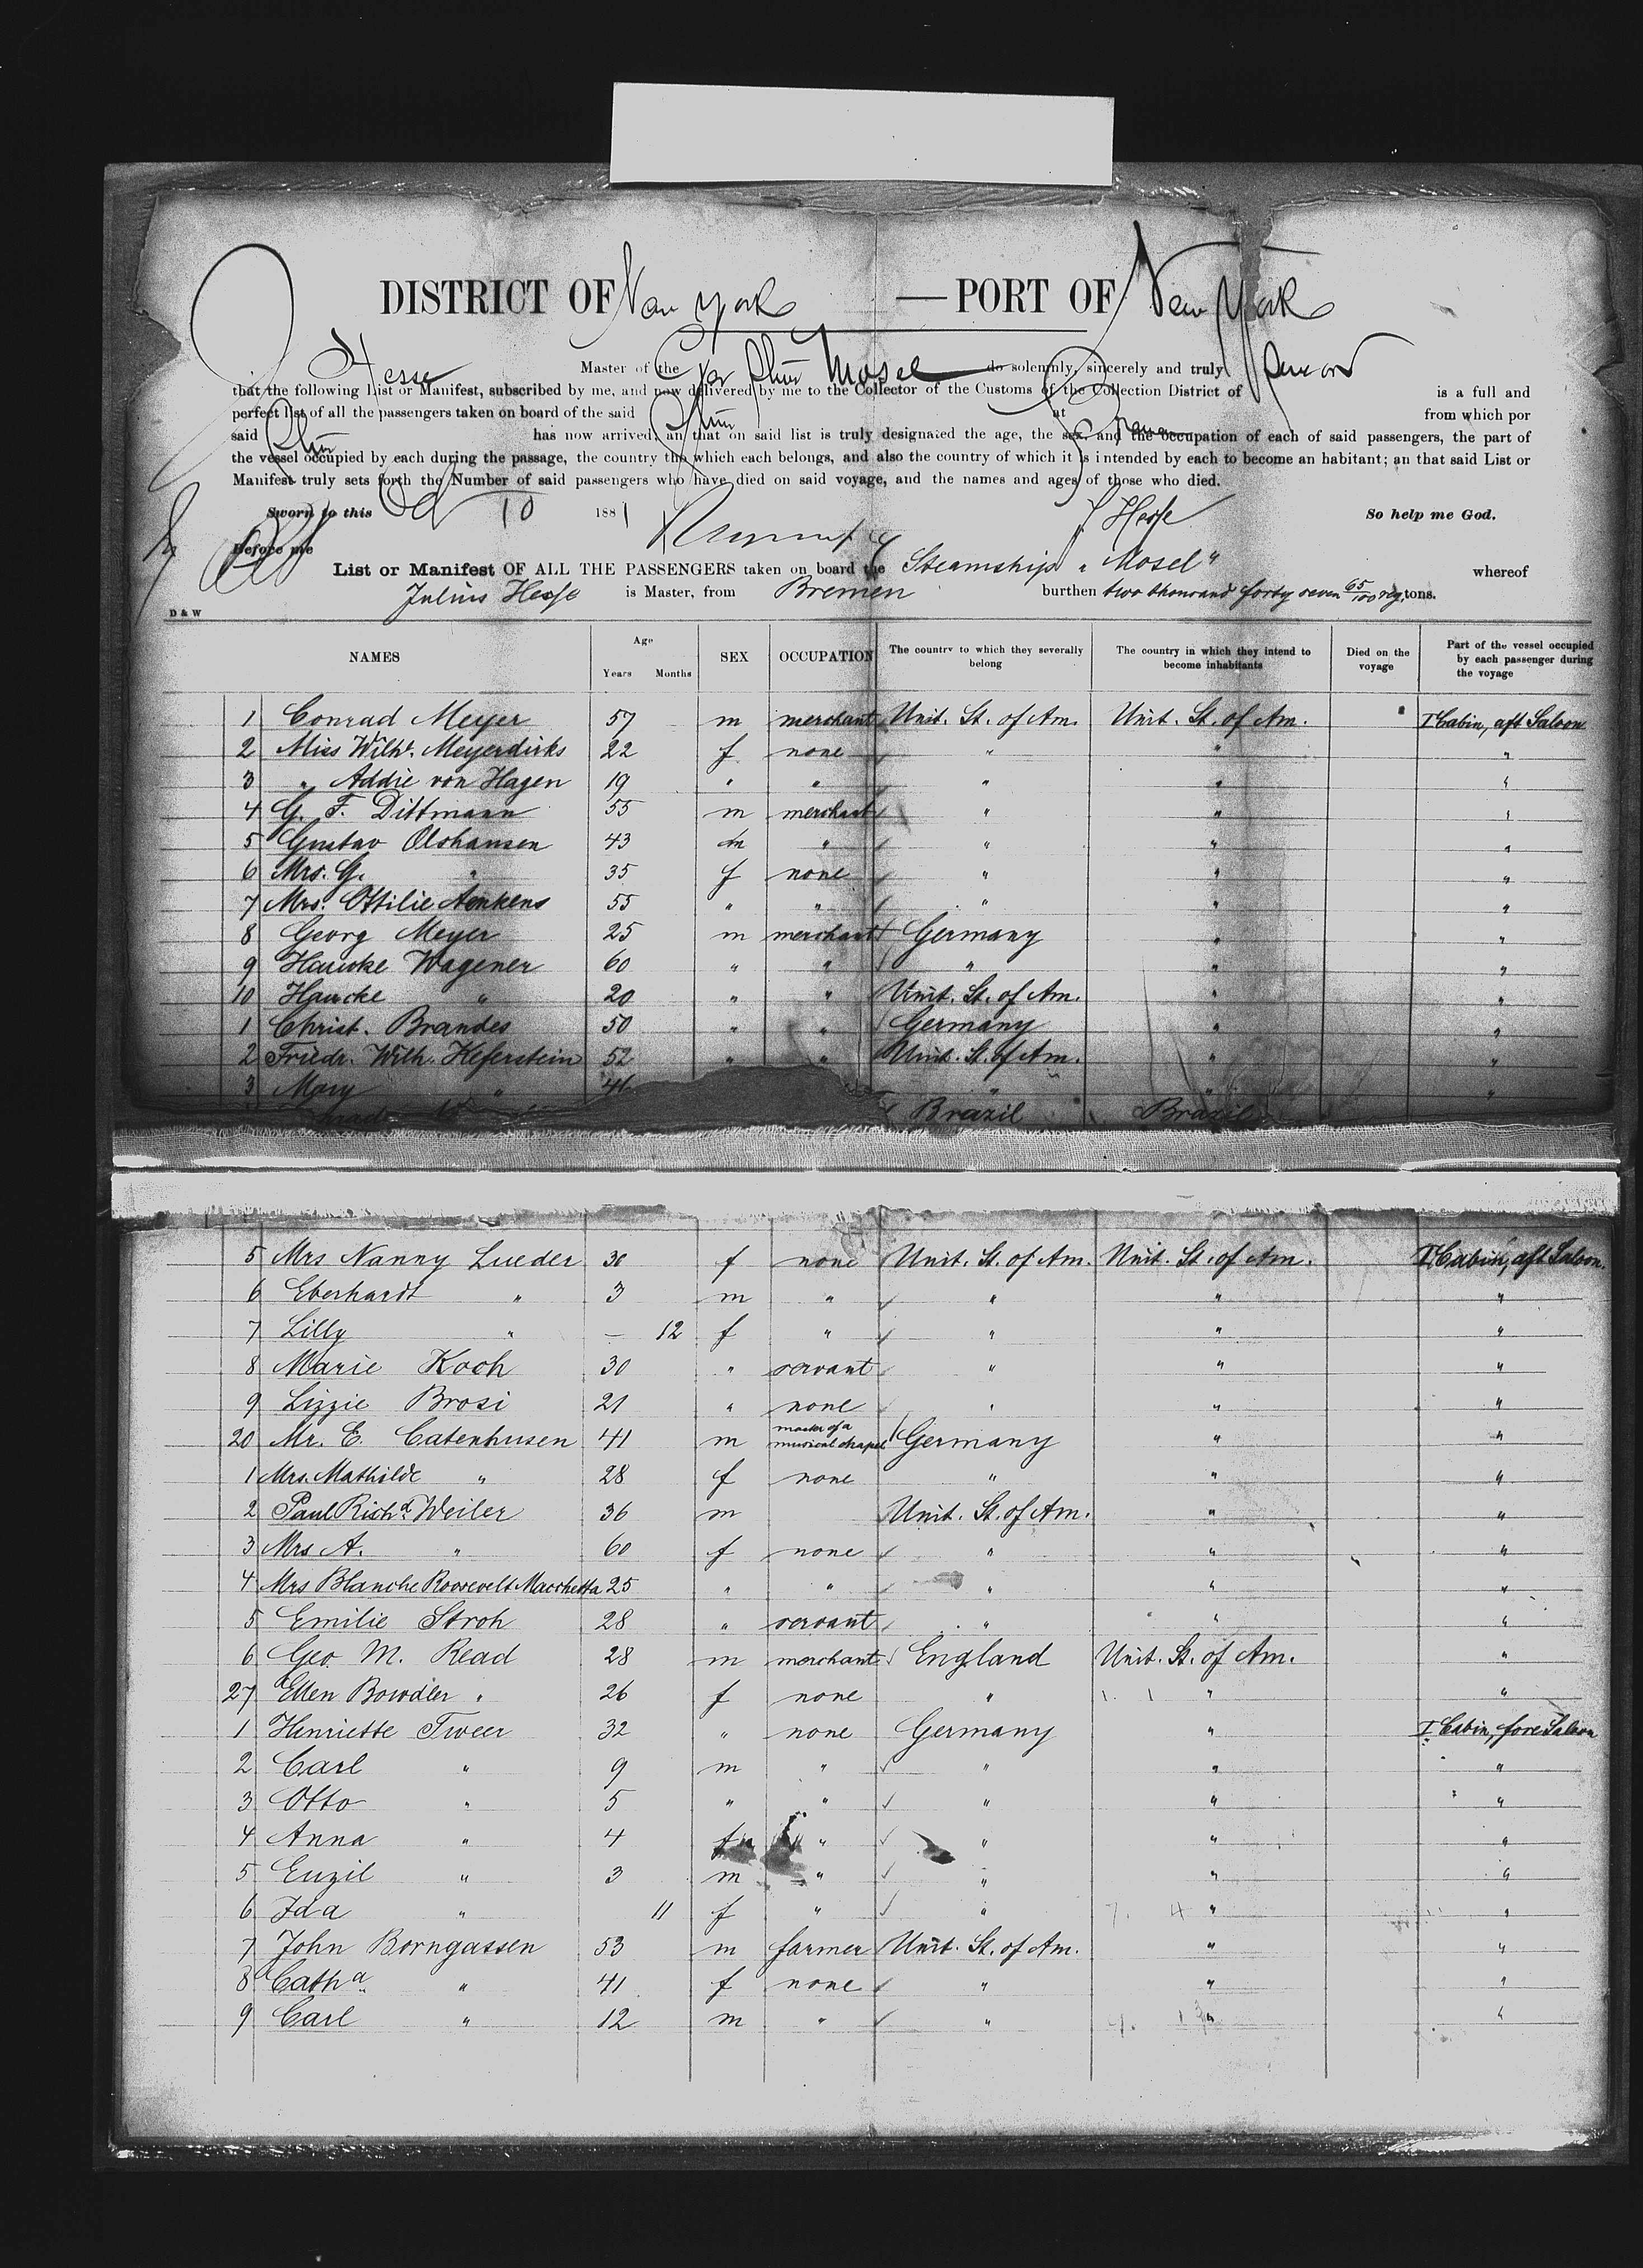 DISTRICT OF New York — PORT OF New York
J Hesse Master of the Ger Stmr Mosel do solemnly, sincerely and truly swear
that the following List or Manifest, subscribed by me, and now delivered by me to the Collector of the Customs of the Collection District of is a full and
perfect list of all the passengers taken on board of the said Stmr at Bremen from which por
said Stmr has now arrived, an that on said list is truly designated the age, the sex, and the occupation of each of said passengers, the part of
the vessel occupied by each during the passage, the country tho which each belongs, and also the country of which it is intended by each to become an habitant; an that said List or
Manifest truly sets forth the Number of said passengers who have died on said voyage, and the names and ages of those who died.
Sworn to this Oct 10 1881 J. Hesse So help me God.
Before me
List or Manifest OF ALL THE PASSENGERS taken on board the Steamship „Mosel" whereof
Julius Hesse is Master, from Bremen burthen two thousand forty seven 65/100 reg. tons.
D & W
NAMES Age Years Months SEX OCCUPATION The country to which they severally belong The country in which they intend to become inhabitants Died on the voyage Part of the vessel occupied by each passenger during the voyage
1 Conrad Meyer 57 m merchant Unit. St. of Am. Unit. St. of Am. I Cabin, aft Saloon
2 Miss Wilhe. Meyerdirks 22 f none " " "
3 " Addie von Hagen 19 " " " " "
4 G. F. Dittmann 55 m merchant " " "
5 Gustav Olshansen 43 m " " " "
6 Mrs. G. " 35 f none " " "
7 Mrs. Ottilie Aenkens 55 " " " " "
8 Georg Meyer 25 m merchant Germany " "
9 Haucke Wagener 60 " " " " "
10 Haucke " 20 " " Unit. St. of Am. " "
1 Christ. Brandes 50 " " Germany " "
2 Friedr. Wilh. Heferstein 52 " " Unit. St. of Am. " "
3 Mary " 46 " " "
Brazil Brazil
5 Mrs Nanny Lueder 30 f none Unit. St. of Am. Unit. St. of Am. I Cabin, aft Saloon.
6 Eberhardt " 3 m " " " "
7 Lilly " – 12 f " " " "
8 Marie Koch 30 " servant " " "
9 Lizzie Brosi 21 " none " " "
20 Mr. E. Catenhusen 41 m master of a musical chapel Germany " "
1 Mrs. Mathilde " 28 f none " " "
2 Paul Richd. Weiler 36 m Unit. St. of Am. " "
3 Mrs A. " 60 f none " " "
4 Mrs Blanche Roosevelt Macchetta 25 " " " " "
5 Emilie Stroh 28 " servant " " "
6 Geo. M. Read 28 m merchant England Unit. St. of Am. "
27 Ellen Bowdler " 26 f none " " "
1 Henriette Tweer 32 " none Germany " I Cabin, fore Saloon
2 Carl " 9 m " " " "
3 Otto " 5 " " " " "
4 Anna " 4 f " " " "
5 Euzil " 3 m " " " "
6 Ida " 11 f " " " "
7 John Borngassen 53 m farmer Unit. St. of Am. " "
8 Catha. " 41 f none " " "
9 Carl " 12 m " " " "